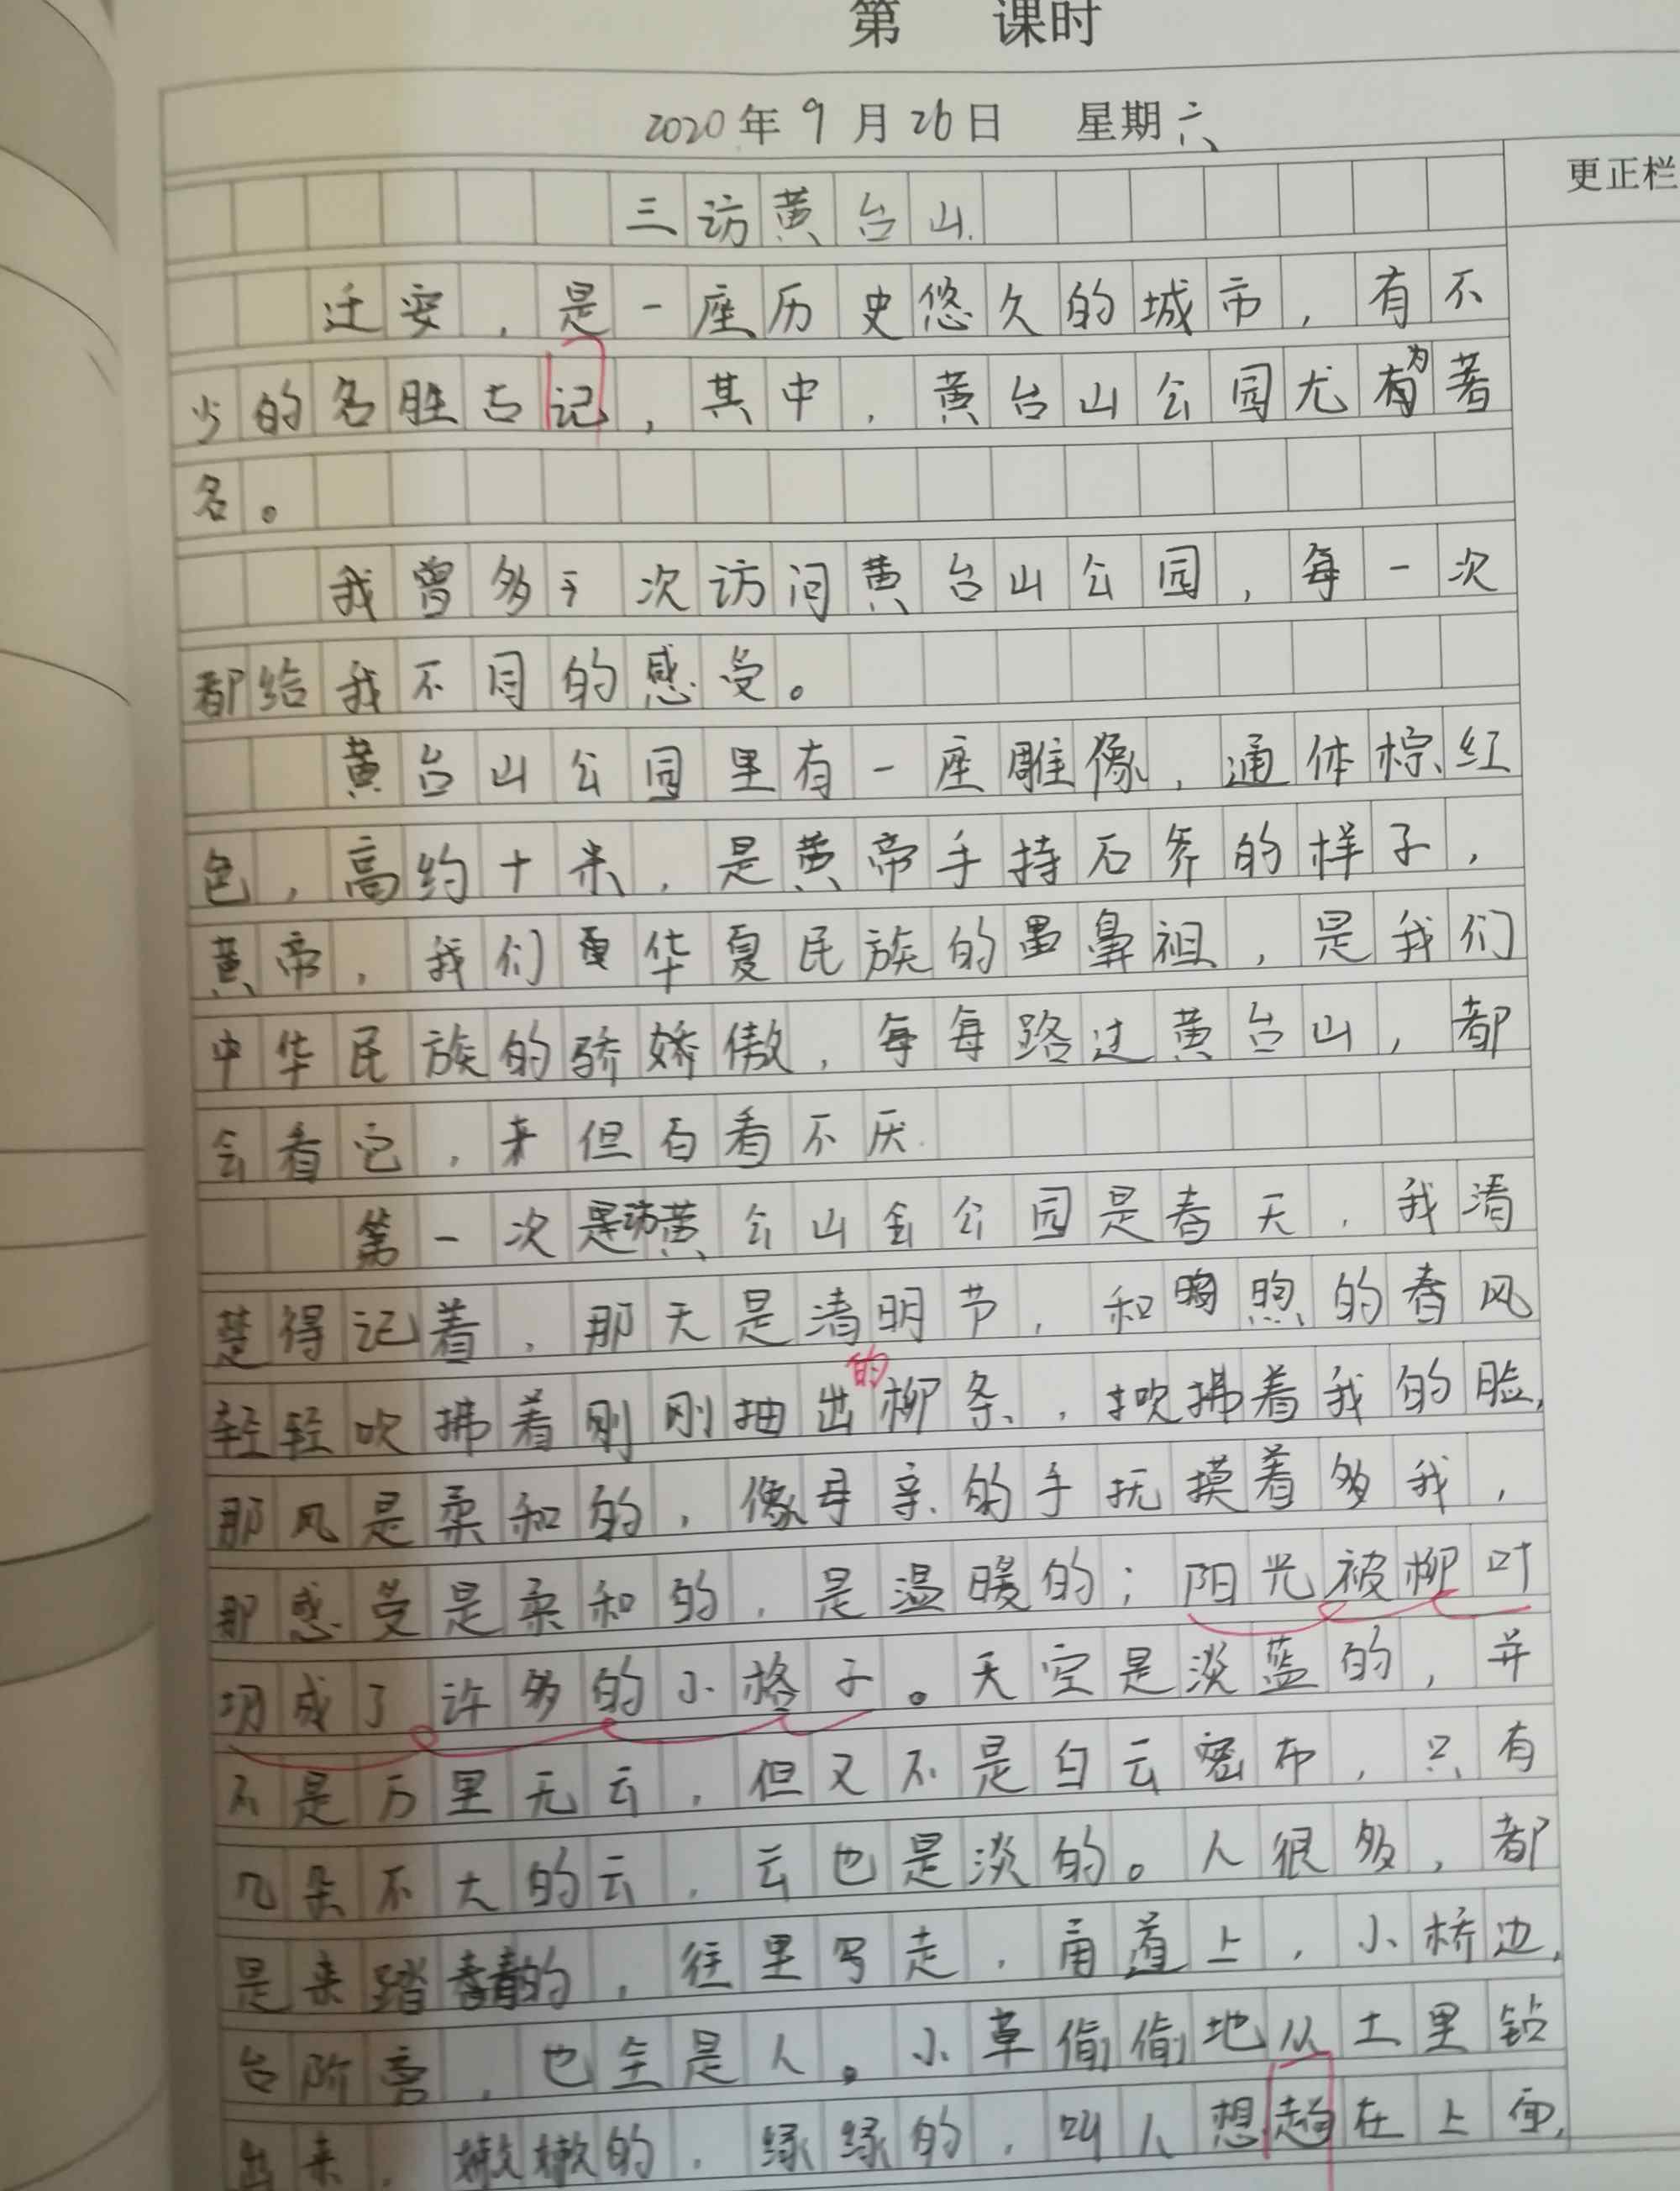 第 课时
2020年9月26日 星期六
更正栏
三访黄台山
迁安，是一座历史悠久的城市，有不
少的名胜古记，其中，黄台山公园尤为著
名。
我曾多次访问黄台山公园，每一次
都给我不同的感受。
黄台山公园里有一座雕像，通体棕红
色，高约十米，是黄帝手持石斧的样子，
黄帝，我们华夏民族的鼻祖，是我们
中华民族的骄傲，每每路过黄台山，都
会看它，但百看不厌
第一次访黄台山公园是春天，我清
楚得记着，那天是清明节，和煦的春风
轻轻吹拂着刚刚抽出的柳条，吹拂着我的脸，
那风是柔和的，像母亲的手抚摸着我，
那感受是柔和的，是温暖的；阳光被柳叶
切成了许多的小格子。天空是淡蓝的，并
不是万里无云，但又不是白云密布，只有
几朵不大的云，云也是淡的。人很多，都
是来踏青的，往里走，甬道上，小桥边，
台阶旁，也全是人。小草偷偷地从土里钻
出来，嫩嫩的，绿绿的，叫人想趟在上面，